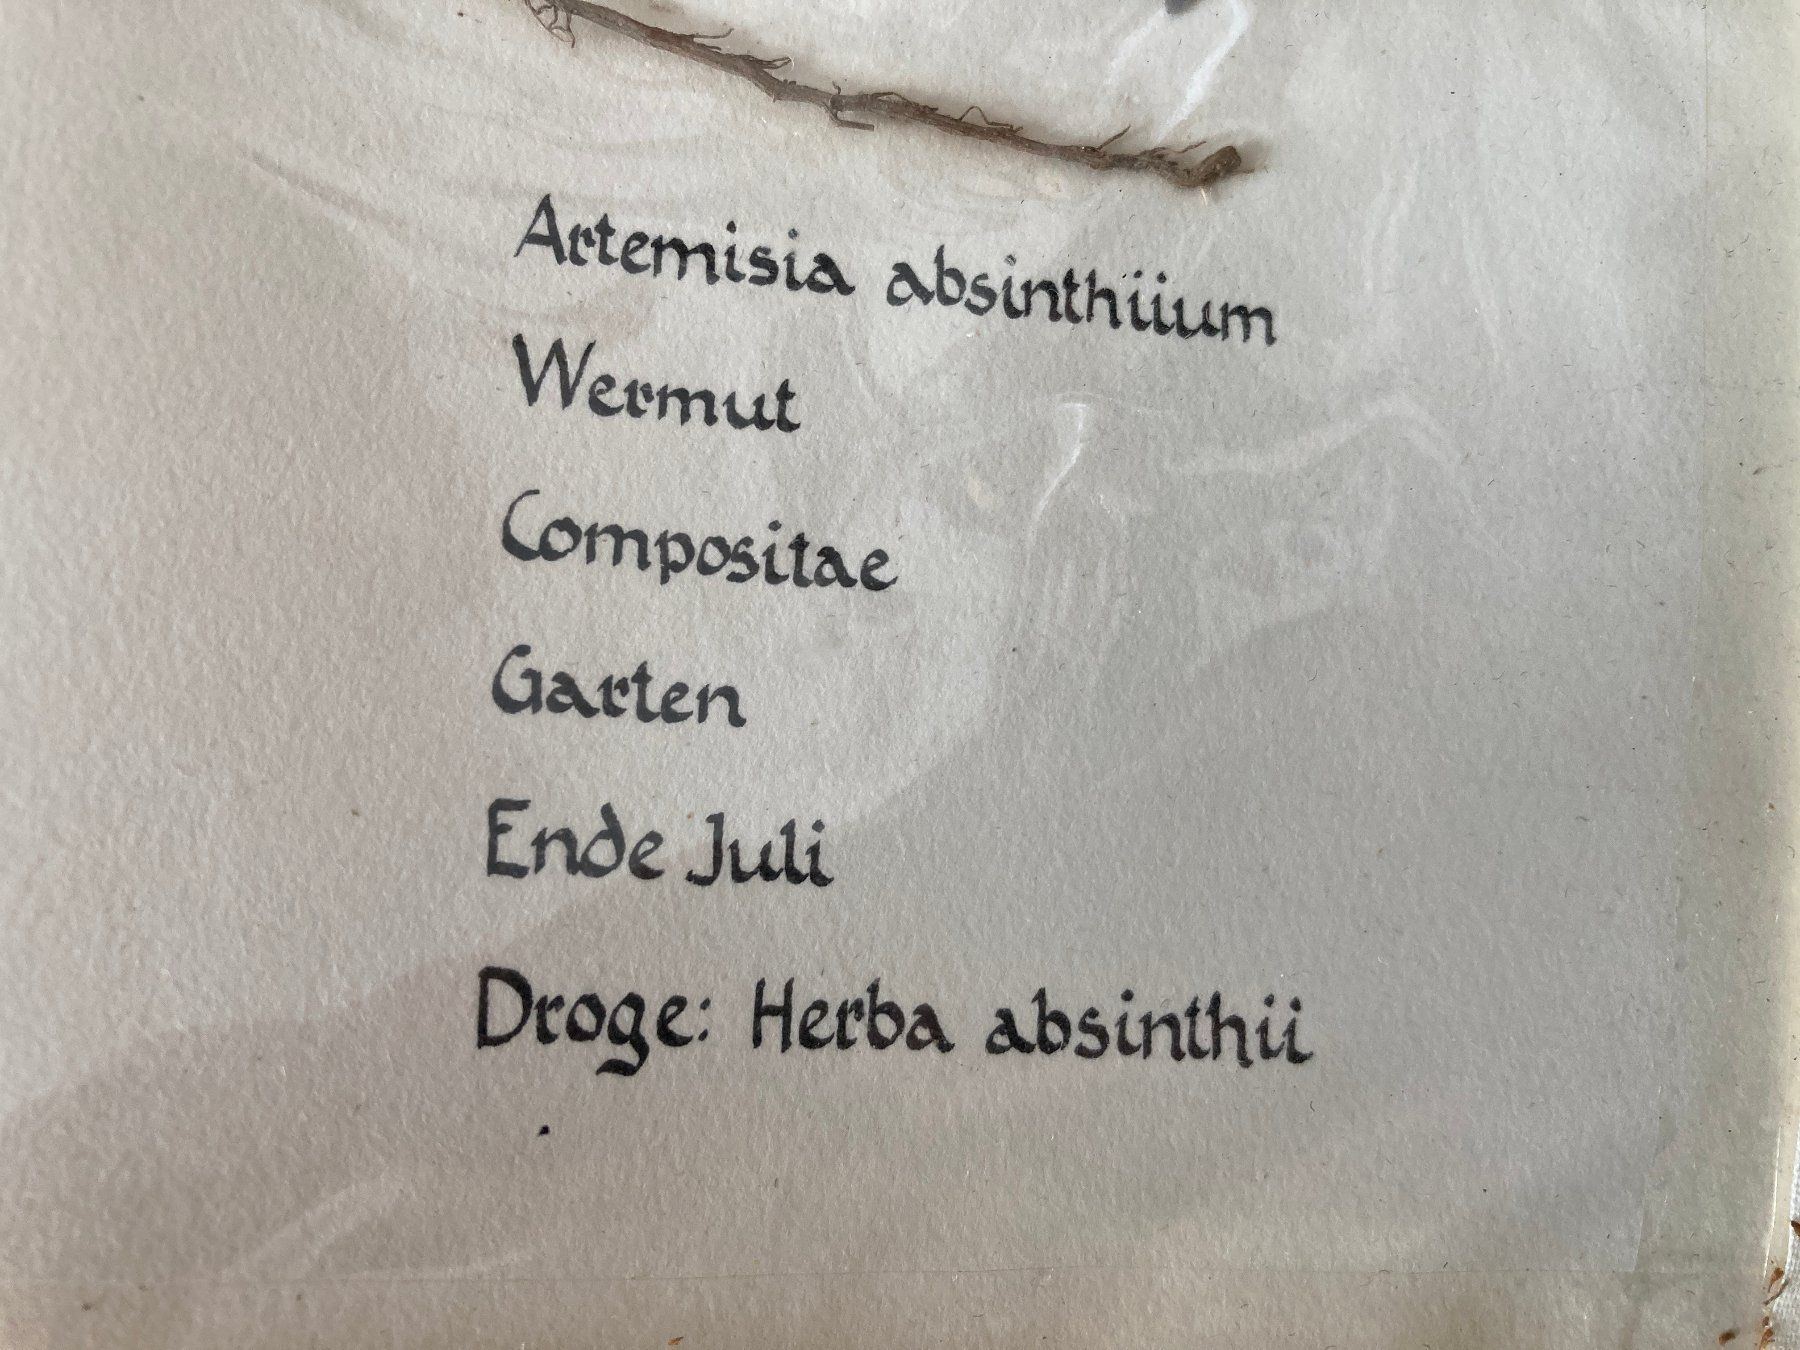 Artemisia absinthiium
Wermut
Compositae
Garten
Ende Juli
Droge: Herba absinthii